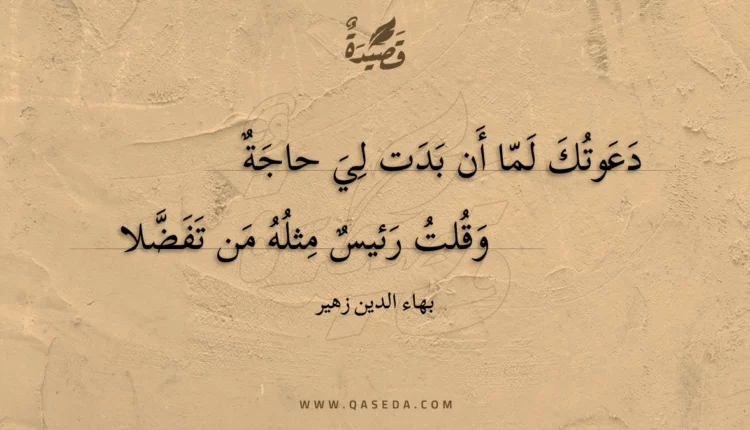 قَصِيدَةٌ
دَعَوتُكَ لَمّا أَن بَدَت لِيَ حاجَةٌ
وَقُلتُ رَئيسٌ مِثلُهُ مَن تَفَضَّلا
بهاء الدين زهير
WWW.QASEDA.COM